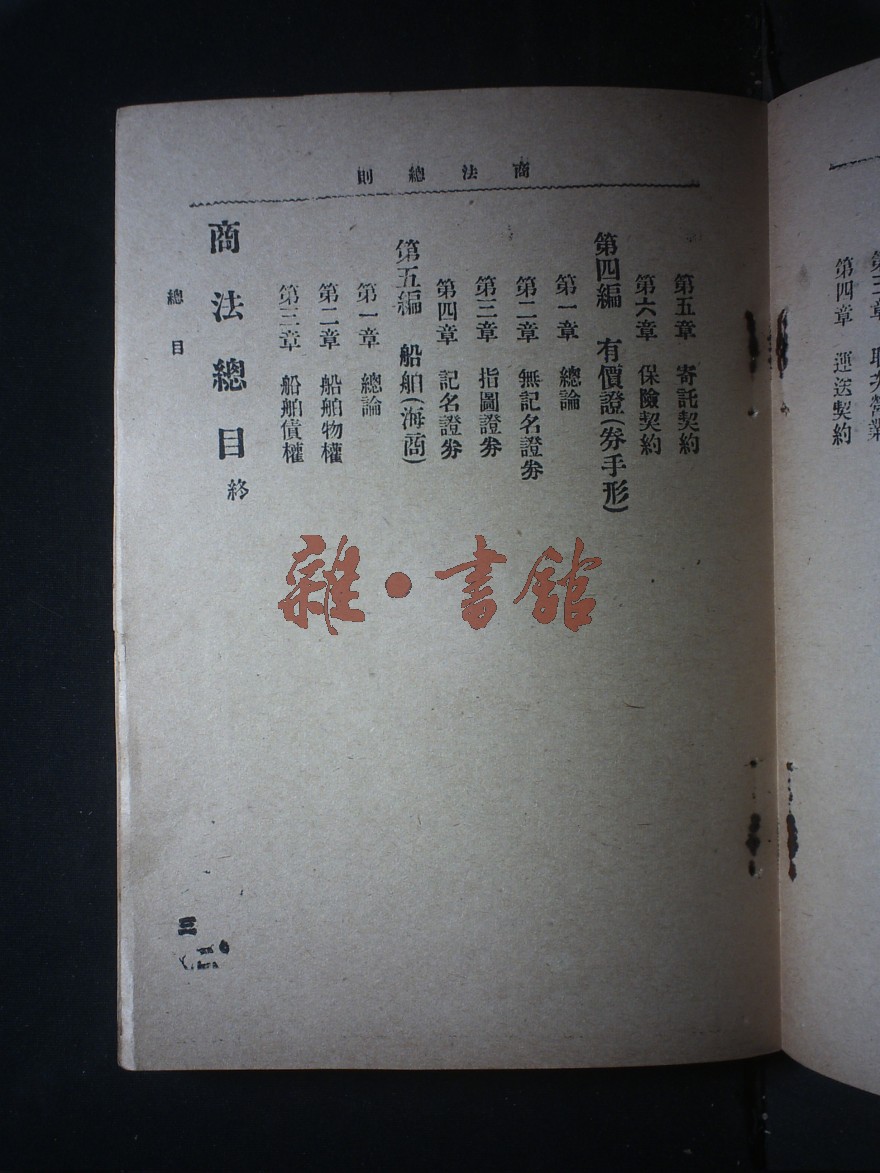 商法總則
第五章 寄託契約
第六章 保險契約
第四編 有價證(券手形)
第一章 總論
第二章 無記名證券
第三章 指圖證券
第四章 記名證券
第五編 船舶(海商)
第一章 總論
第二章 船舶物權
第三章 船舶債權
商法總目終
總目
三
雜·書館
第四章 運送契約